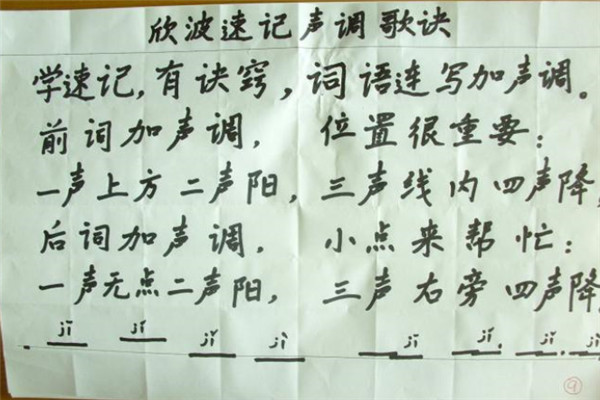 欣波速记声调歌诀
学速记,有诀窍,词语连写加声调。
前词加声调, 位置很重要:
一声上方二声阳,三声线内四声降,
后词加声调, 小点来帮忙:
一声无点二声阳, 三声右旁四声降,
jī jí jǐ jì jī jí jǐ jì
9